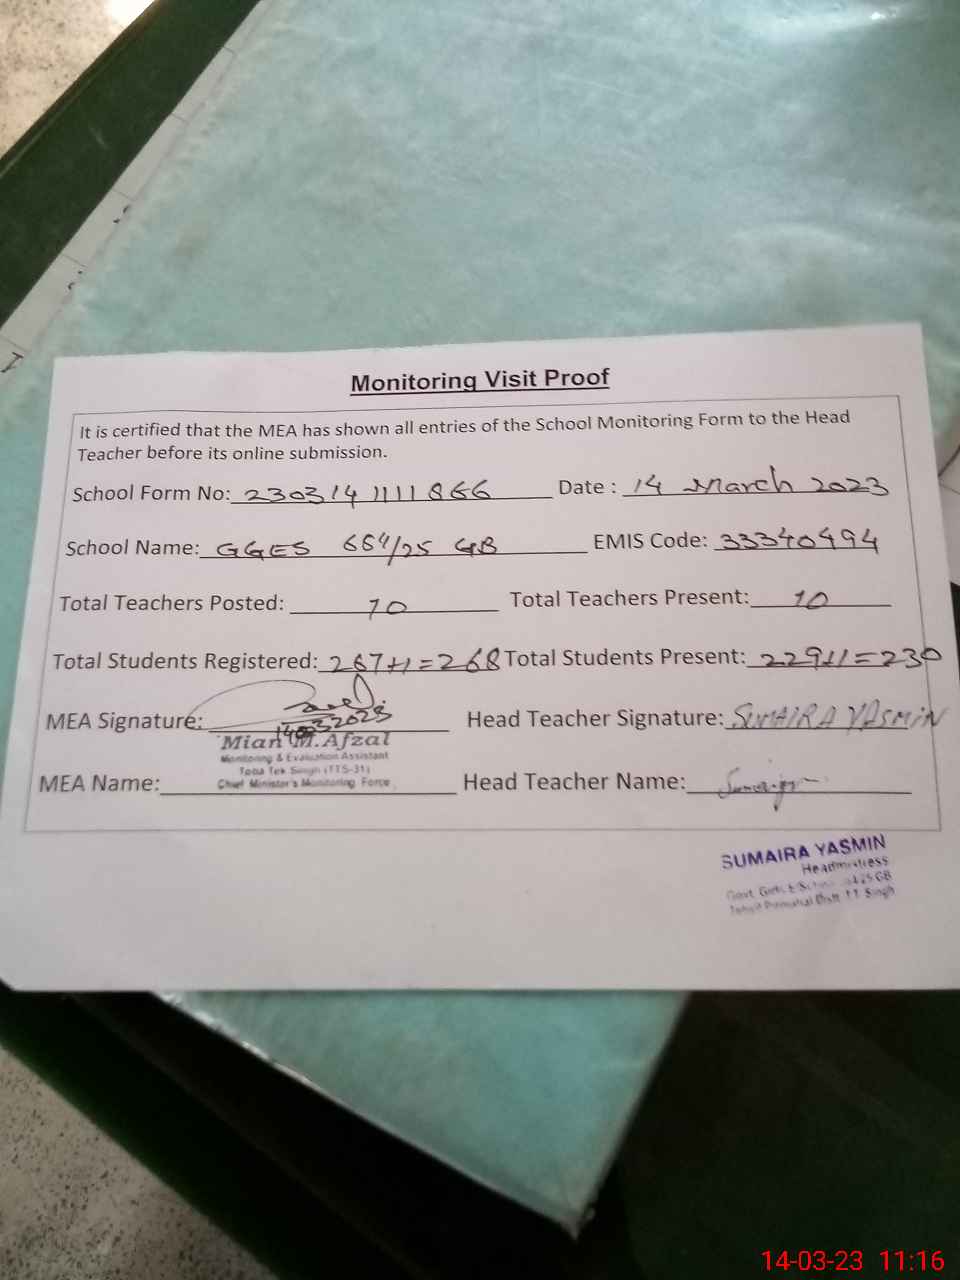 Monitoring Visit Proof
It is certified that the MEA has shown all entries of the School Monitoring Form to the Head
Teacher before its online submission.
School Form No: 2303141111866 Date : 14 March 2023
School Name: GGES 684/25 GB EMIS Code: 33340494
Total Teachers Posted: 10 Total Teachers Present: 10
Total Students Registered: 267+1=268 Total Students Present: 229+1=230
MEA Signature: 14032023 Head Teacher Signature: SUMAIRA YASMIN
Mian M.Afzal
Monitoring & Evaluation Assistant
Toba Tek Singh (TTS-31)
Chief Minister's Monitoring Force
MEA Name: Head Teacher Name: Sumaira
SUMAIRA YASMIN
Headmistress
Govt. Girls E/School GB
Tehsil Pirmahal Distt. T.T. Singh
14-03-23 11:16